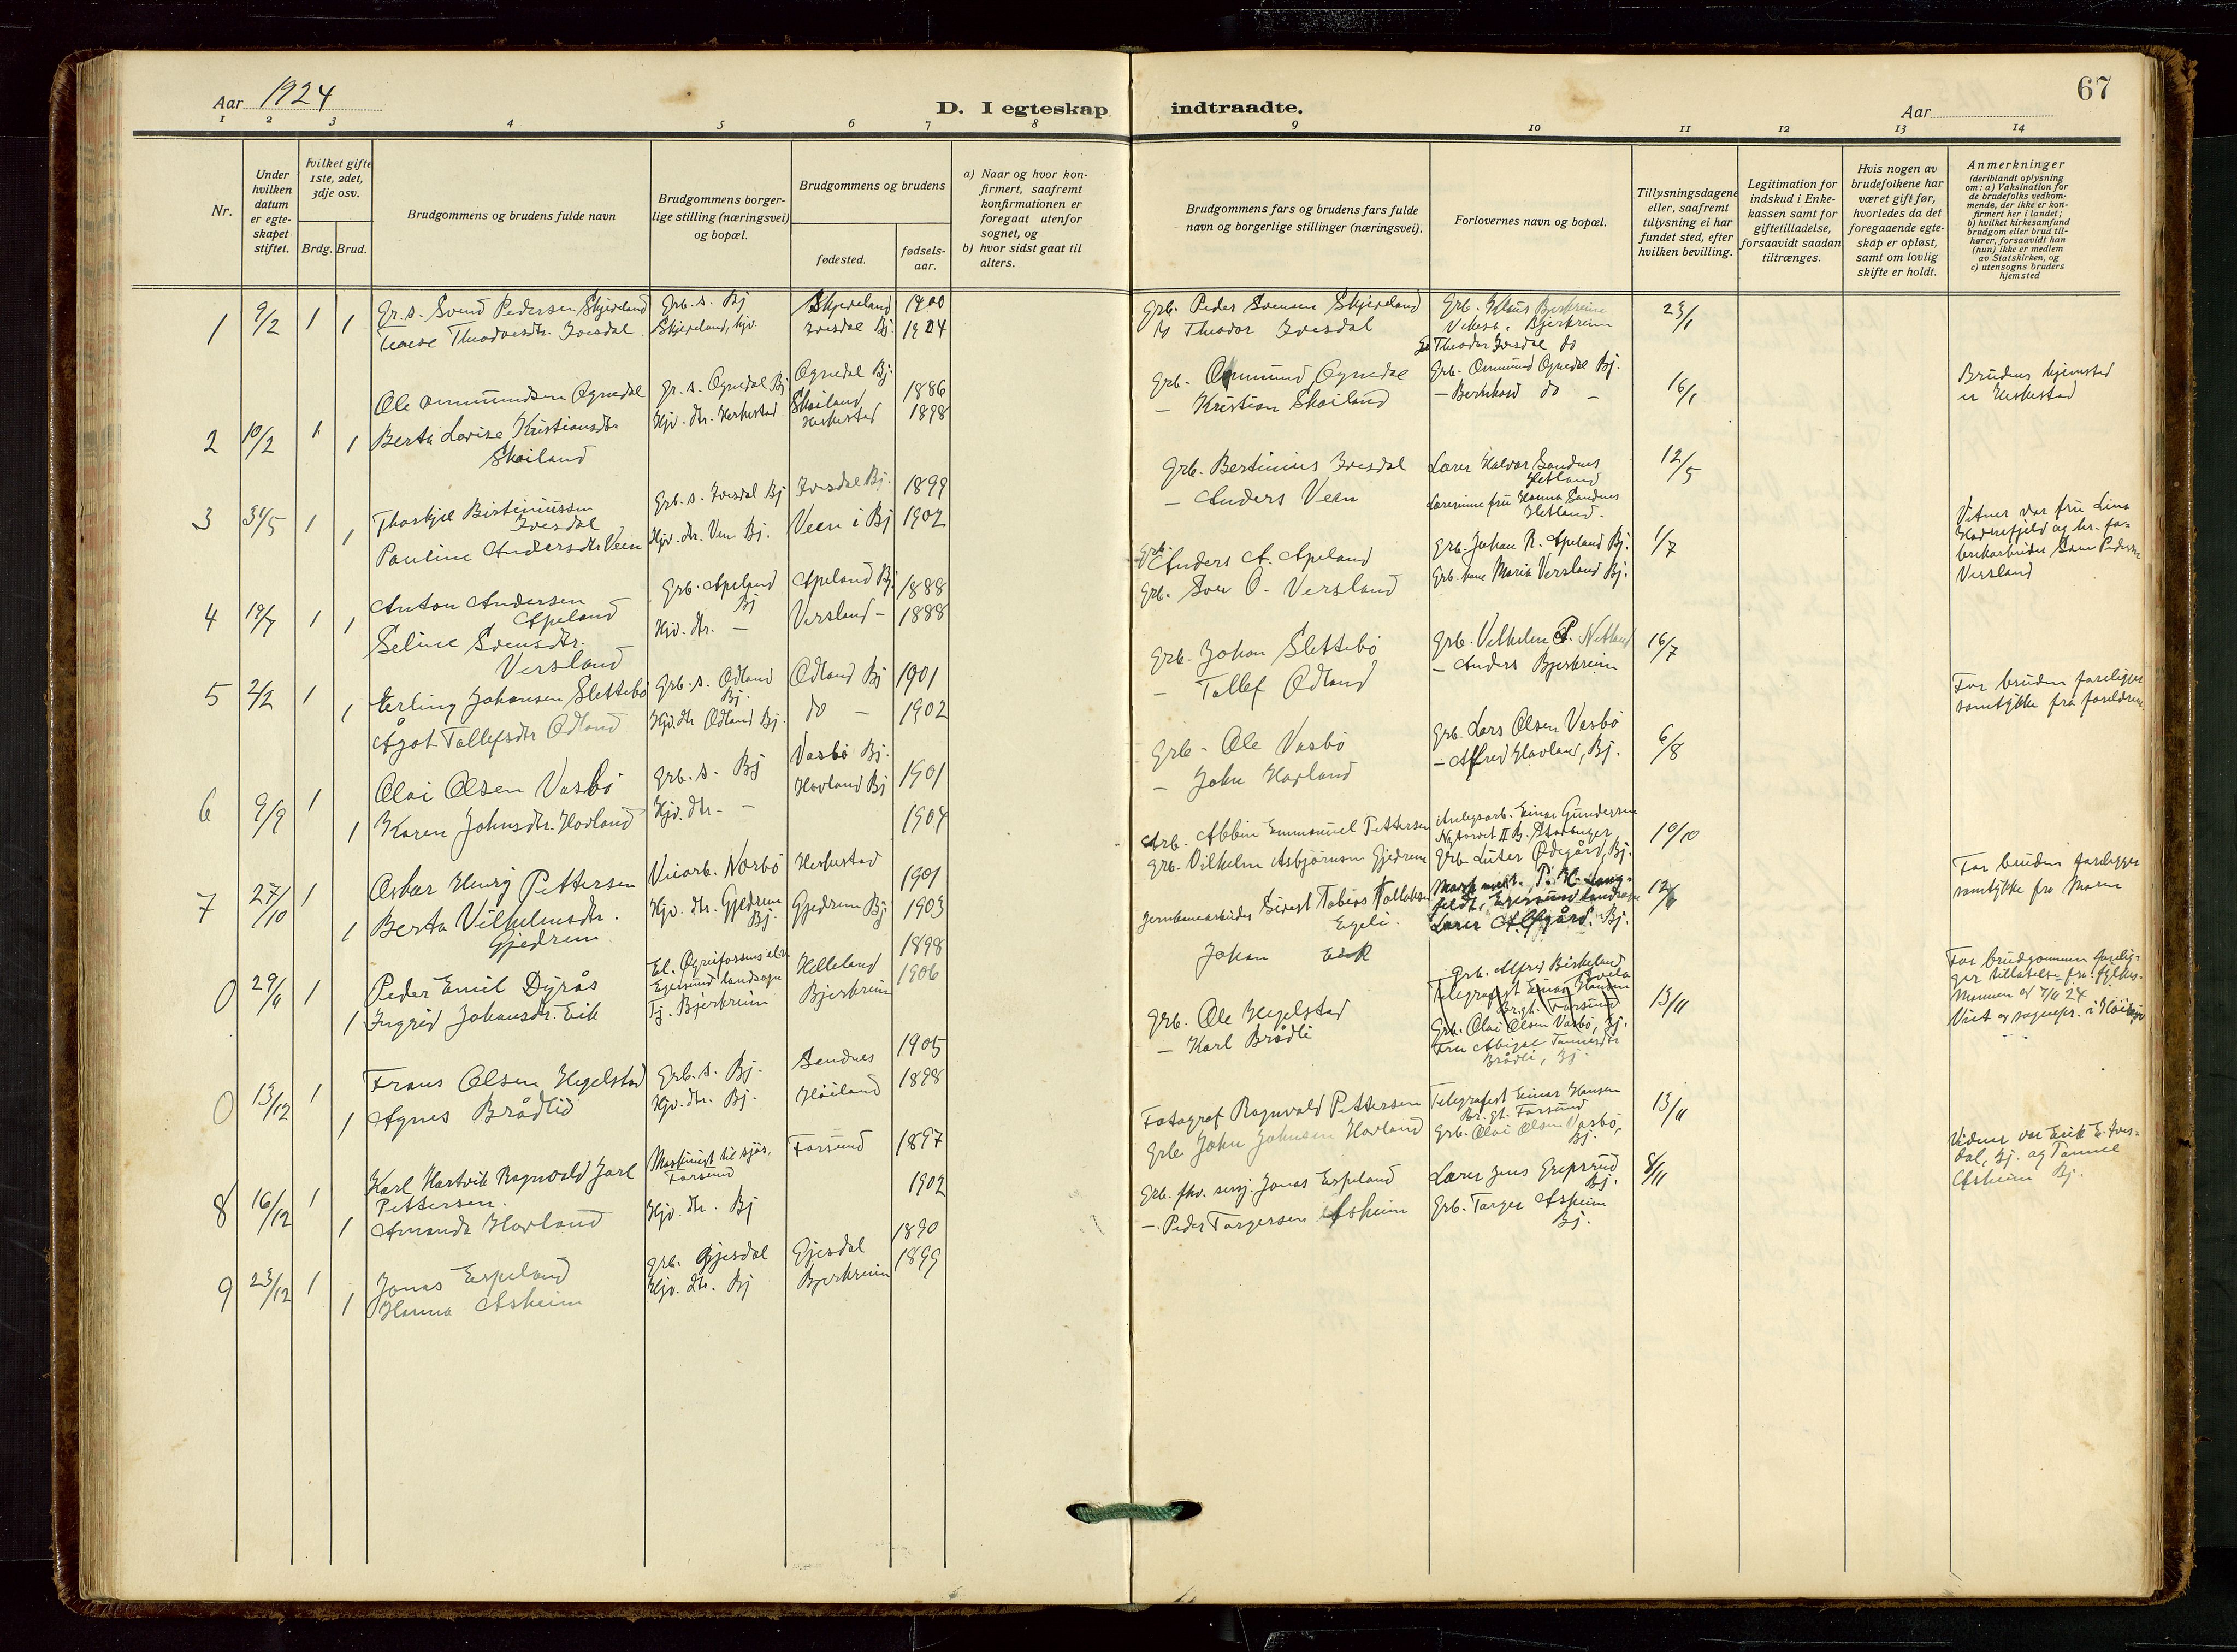 Aar 1924
D. I egteskap indtraadte.
Aar
67
1 2 3 4 5 6 7 8 9 10 11 12 13 14
Nr.
Under hvilken datum er egteskapet stiftet.
Hvilket gifte 1ste, 2det, 3dje osv.
Brdg. Brud.
Brudgommens og brudens fulde navn
Brudgommens borgerlige stilling (næringsvei) og bopæl.
Brudgommens og brudens
fødested.
fødselsaar.
a) Naar og hvor konfirmert, saafremt konfirmationen er foregaat utenfor sognet, og
b) hvor sidst gaat til alters.
Brudgommens fars og brudens fars fulde navn og borgerlige stillinger (næringsvei).
Forlovernes navn og bopæl.
Tillysningsdagene eller, saafremt tillysning ei har fundet sted, efter hvilken bevilling.
Legitimation for indskud i Enkekassen samt for giftetilladelse, forsaavidt saadan tiltrænges.
Hvis nogen av brudefolkene har været gift før, hvorledes da det foregaaende egteskap er opløst, samt om lovlig skifte er holdt.
Anmerkninger
(deriblandt oplysning om: a) Vaksination for de brudefolks vedkommende, der ikke er konfirmert her i landet; b) hvilket kirkesamfund brudgom eller brud tilhører, forsaavidt han (hun) ikke er medlem av Statskirken, og c) utensogns bruders hjemsted
1 9/2 1 Gr.s. Svend Pedersen Skjæveland Grb. s. Bj Skjæveland 1900
1 Terese Theodorsdtr. Ivesdal Skjæveland, hjv. Ivesdal Bj. 1904
Grb. Peder Svensen Skjæveland Grb. Klaus Bjerkreim 23/1
do Theodor Ivesdal Vikeså, Bjerkreim
Theodor Ivesdal do
2 10/2 1 Ole Ommundsen Ognedal Gr. s. Ognedal Bj Ognedal Bj. 1886
1 Berta Lovise Kristiansdtr. Skailand Hjv. dtr. Heskestad Skailand Heskestad 1898
Grb. Ommund Ognedal Grb. Ommund Ognedal Bj. 16/1 Brudens hjemsted
— Kristian Skailand — Bernhard do — er Heskestad
3 31/5 1 Thorkjel Bertiniussen Ivesdal Grb. s. Ivesdal Bj Ivesdal Bj. 1899
1 Pauline Andersdtr. Veen Hjv. dtr. Veen Bj. Veen i Bj 1902
Grb. Bertinius Ivesdal Lærer Halvor Sandnes Hetland 12/5
— Anders Veen Lærerinne fru Hanna Sandnes Hetland.
4 19/7 1 Anton Andersen Apeland Grb. Apeland Bj Apeland Bj 1888
1 Seline Svensdtr. Versland Hjv. dtr. — Versland — 1888
Grb. Anders A. Apeland Grb. Johan R. Apeland Bj. 1/7 Vitner var fru Lina
Grb. Sven O. Versland Grb. kone Maria Versland Bj. Versland
5 2/2 1 Erling Johansen Slettebø Grb. s. Ødland Bj. Ødland Bj 1901
1 Ågot Tollefsdtr Ødland Hjv. dtr Ødland Bj. do — 1902
Grb. Johan Slettebø Grb. Vilhelm P. Netland 16/7 For bruden foreligger
— Tollef Ødland — Anders Bjerkreim samtykke fra foreldrene
6 9/9 1 Olai Olsen Vasbø Grb. s. Bj Vasbø Bj. 1901
1 Karen Johnsdtr. Hovland Hjv. dtr. — Hovland Bj 1904
Grb. Ole Vasbø Grb. Lars Olsen Vasbø 6/8
— John Hovland — Alfred Hovland, Bj.
7 27/10 1 Oskar Henry Pettersen Veiarb. Nærbø Heskestad 1901
1 Berta Vilhelmsdtr. Gjedrem Hjv. dtr. Gjedrem Bj. Gjedrem Bj 1903
Arb. Albin Emmanuel Pettersen Anlegsarb. Einar Gundersen Nytorvet II B. Stavanger 10/10 For bruden foreligger
Grb. Vilhelm Asbjørnsen Gjedrem Grb. Luter Ødegård, Bj. samtykke fra Moren
0 29/11 1 Peder Emil Dyrås El. Øgreifossens elv. Egersund landsogn Helleland 1898
1 Ingrid Johansdtr. Eik Tj. Bjerkreim Bjerkreim 1906
Jernbanearbeider Sivert Tobias Tollaksen Egeli. Maskinist P. H. Langfeldt, Egersund landsogn
Johan Eik Lærer Bj.
0 13/12 1 Frans Olsen Hegelstad Grb. s. Bj. Sandnes 1905
1 Agnes Brådlid Hjv. dtr. Bj. Høiland 1898
Grb. Ole Hegelstad Grb. Alfred Birkeland 13/11
— Karl Brådli Telegrafist Einar Hansen Borgt. Farsund
Grb. Olai Olsen Vasbø, Bj.
Fru Abigael Brådli, Bj.
For brudgommen foreligger tillatelse fra fylkesmannen av 7/11 24
Viet av sognepr. i Høiland
8 16/12 1 Karl Hartvik Ragnvald Jarl Pettersen. Maskinist til sjøs, Farsund Farsund 1897
1 Amanda Hovland Hjv. dtr. Bj 1902
Fotograf Ragnvald Pettersen Telegrafist Einar Hansen Br.gt. Farsund 13/11
Grb. John Johnsen Hovland Grb. Olai Olsen Vasbø, Bj.
9 23/12 1 Jonas Espeland Grb. Gjesdal Gjesdal 1890
1 Hanna Asheim Hjv. dtr. Bj Bjerkreim 1899
Grb. fhv. sersj. Jonas Espeland Lærer Jens Grepsrud Bj. 8/11 Vidner var Eirik E. Ivesdal, Bj. og Tønnel
— Peder Torgersen Asheim Grb. Torger Asheim Bj. Asheim Bj.